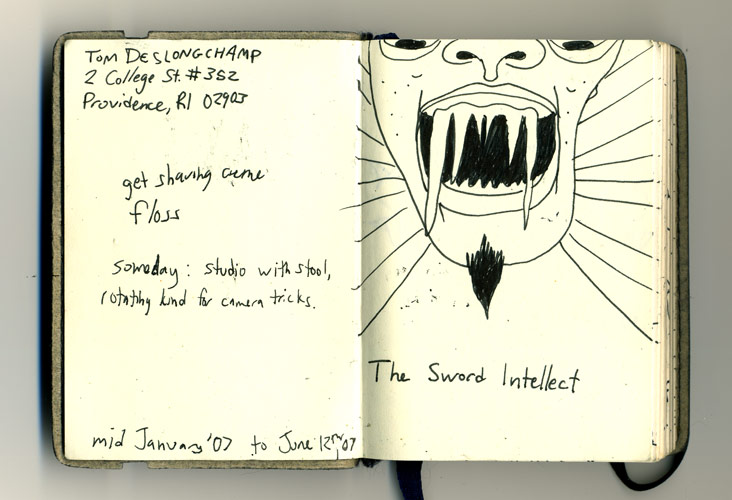 TOM DESLONGCHAMP
2 College St. #352
Providence, RI 02903
get shaving creme
floss
someday: studio with stool,
rotating kind for camera tricks.
mid January '07 to June 12 07
The Sword Intellect